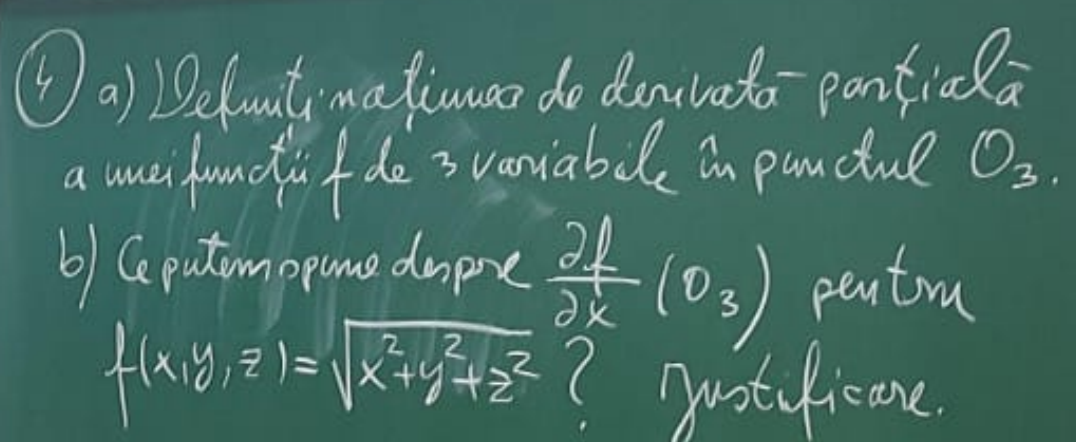 4 a) Definiți noțiunea de derivată parțială
a unei funcții f de 3 variabile în punctul O₃.
b) Ce putem spune despre ∂f/∂x (O₃) pentru
f(x,y,z)=√(x²+y²+z²) ? Justificare.